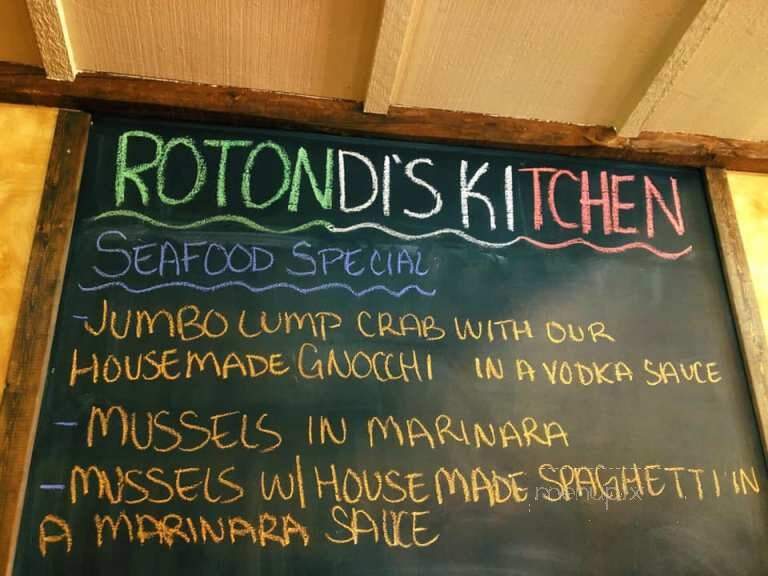 ROTONDI'S KITCHEN
SEAFOOD SPECIAL
- JUMBO LUMP CRAB WITH OUR
HOUSEMADE GNOCCHI IN A VODKA SAUCE
- MUSSELS IN MARINARA
- MUSSELS W/ HOUSEMADE SPAGHETTI IN
menupix
A MARINARA SAUCE